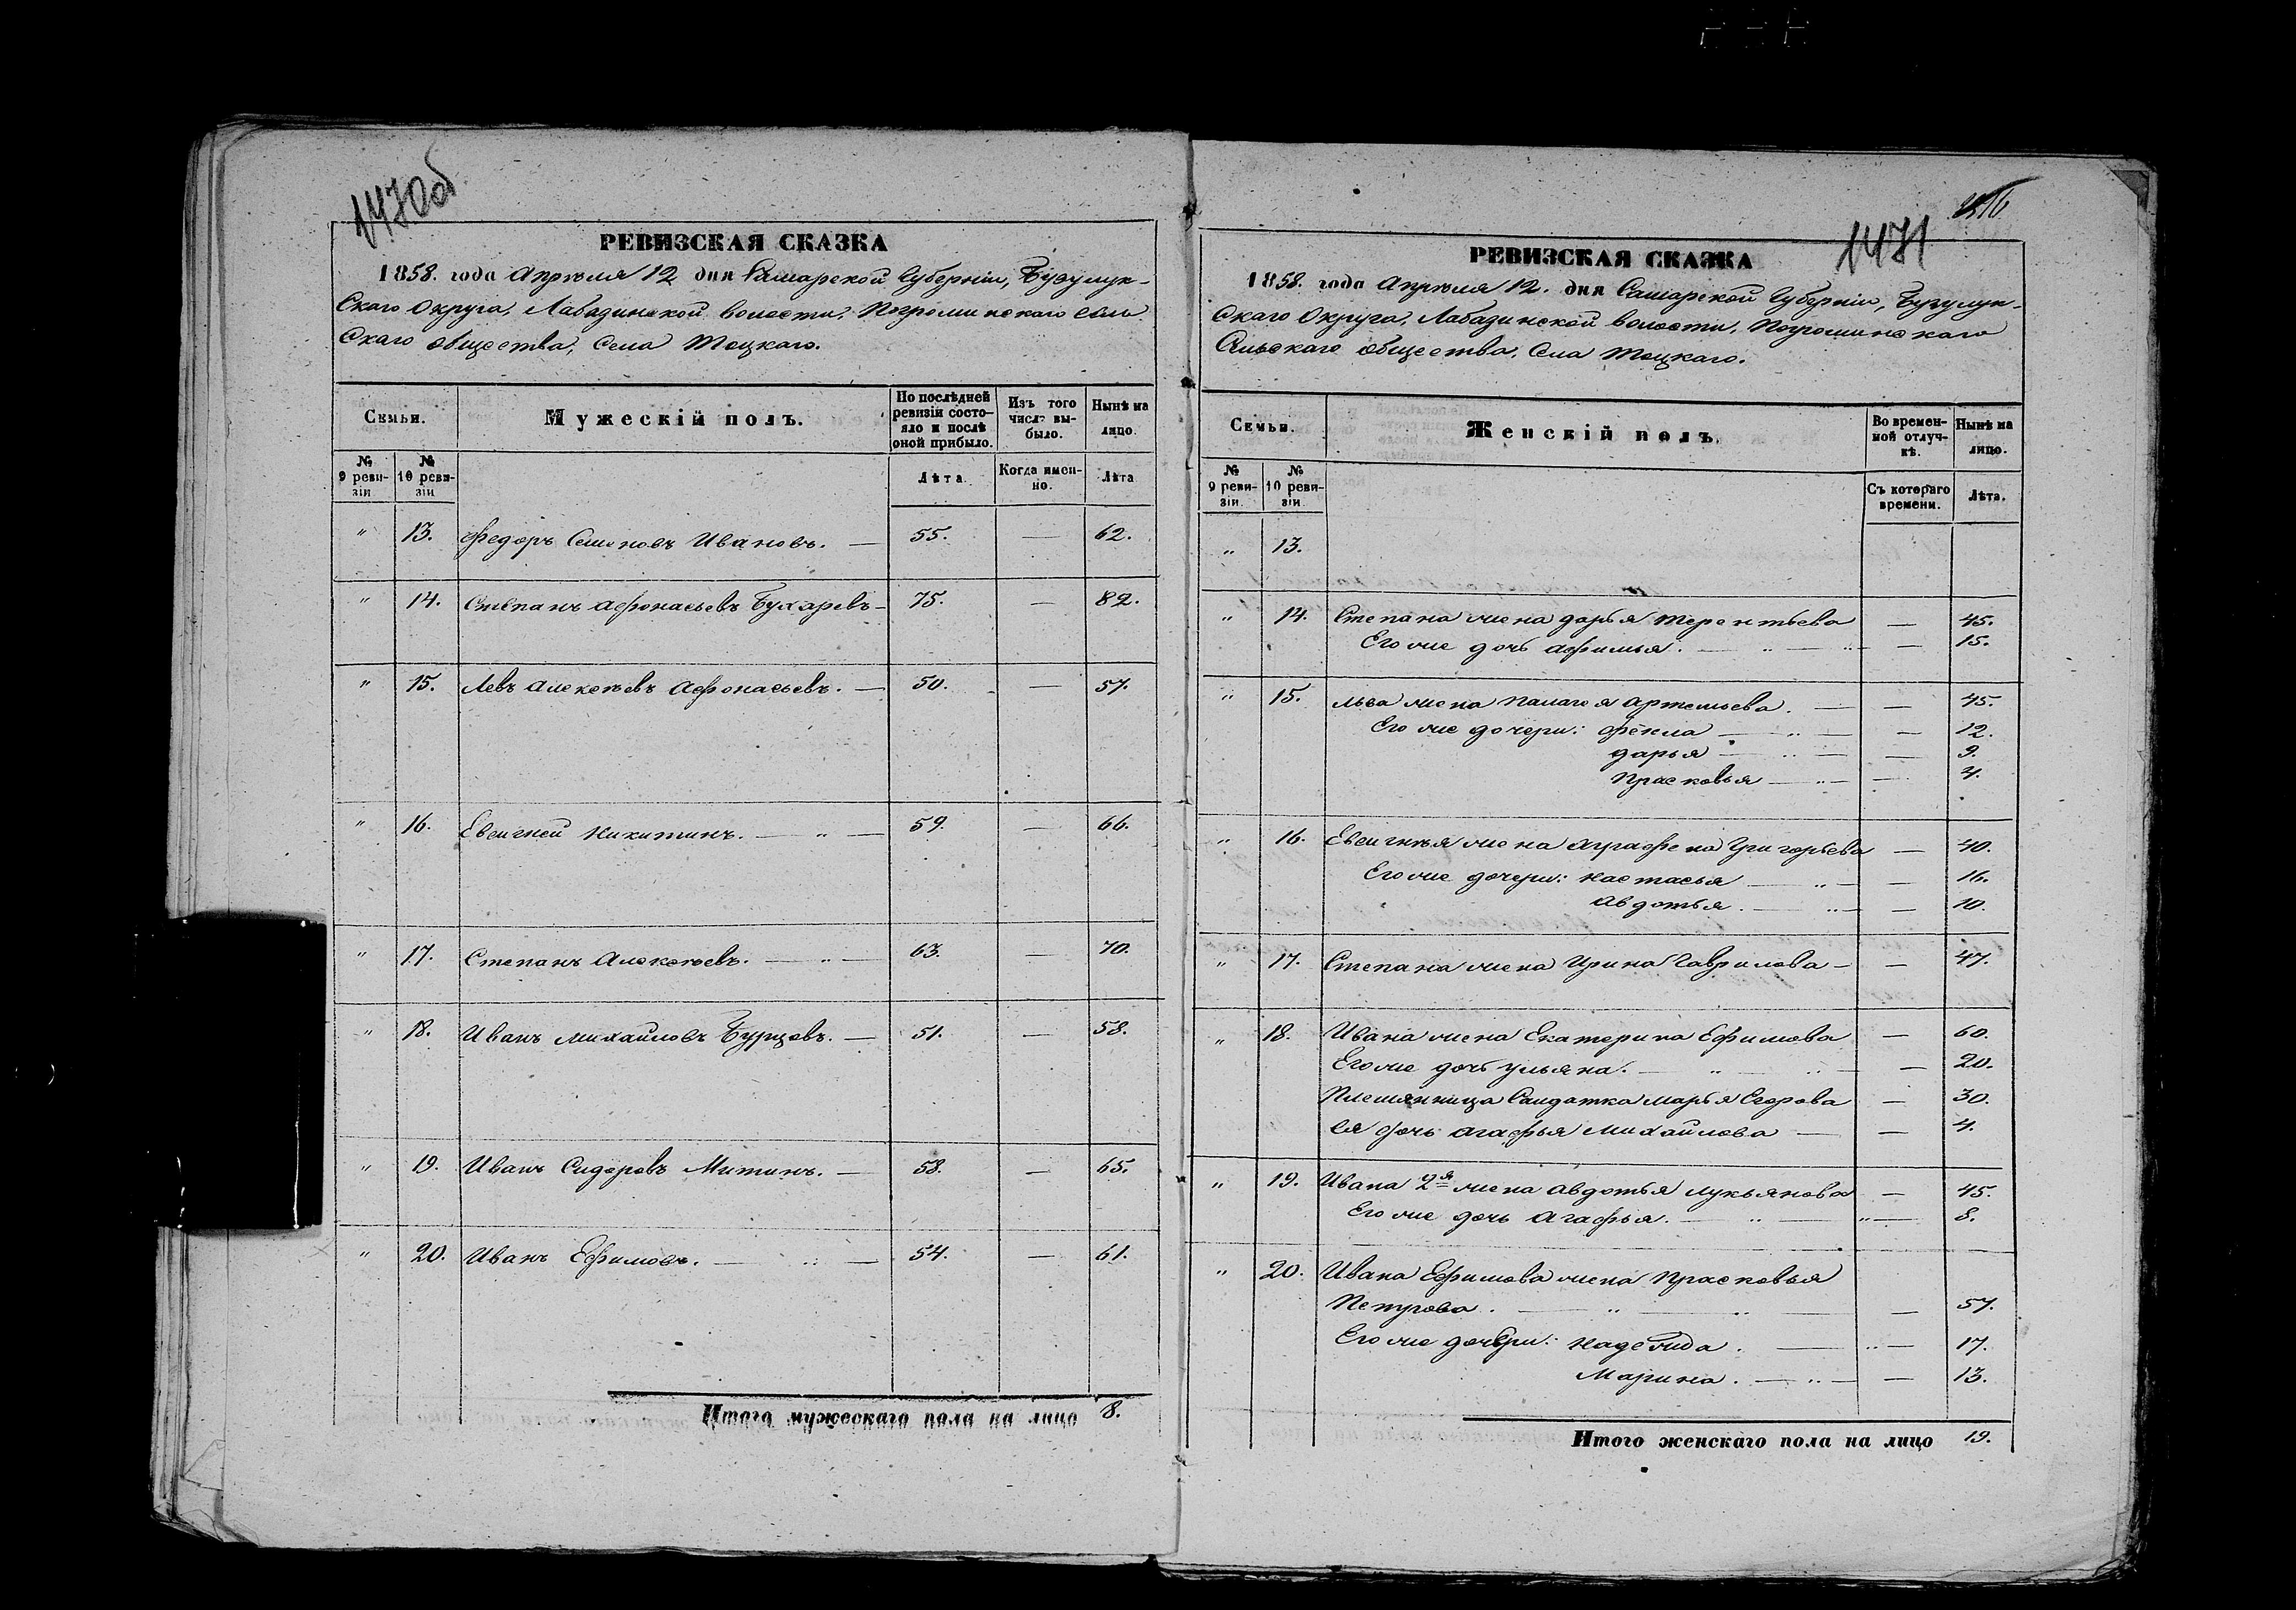 1470об
РЕВИЗСКАЯ СКАЗКА
1858. года Апрѣля 12 дня Самарской Губерніи, Бузулук-
скаго Округа, Лабазинской волости, Погроминскаго Сель
скаго общества, Села Тоцкаго.
Семьи. Мужескій полъ. По послѣдней ревизіи состояло и послѣ оной прибыло. Изъ того числа выбыло. Нынѣ на лицо.
№ 9 ревизіи № 10 ревизіи Лѣта Когда именно. Лѣта
" 13. Федоръ Семеновъ Ивановъ. — 55. — 62.
" 14. Степанъ Афонасьевъ Бухаревъ — 75. — 82.
" 15. Левъ Алексѣевъ Афонасьевъ. — 50. — 57.
" 16. Евсигней Никитинъ. — " — 59. — 66.
" 17. Степанъ Алексѣевъ. — " — 63. — 70.
" 18. Иванъ Михайловъ Бурцовъ. — 51. — 58.
" 19. Иванъ Сидоровъ Митинъ. — 58. — 65.
" 20. Иванъ Ефимовъ. — " — 54. — 61.
Итого мужескаго пола на лицо 8.
1471
РЕВИЗСКАЯ СКАЗКА
1858. года Апрѣля 12. дня Самарской Губерніи, Бузулук-
скаго Округа, Лабазинской волости, Погроминскаго
Сельскаго общества, Села Тоцкаго.
Семьи. Женскій полъ. Во временной отлучкѣ. Нынѣ на лицо.
№ 9 ревизіи. № 10 ревизіи Съ котораго времени. Лѣта.
" 13.
" 14. Степана жена Дарья Терентьева — 45.
Его же дочь Афимья. — " — " — 15.
" 15. Льва жена Палагея Артемьева. — — 45.
Его же дочери: Фекла — " — — 12.
Дарья — " — — 9.
Прасковья — " — — 4.
" 16. Евсигнѣя жена Аграфена Григорьева — 40.
Его же дочери: Настасья — " — — 16.
Авдотья. — " — — 10.
" 17. Степана жена Ирина Гаврилова — — 47.
" 18. Ивана жена Екатерина Ефимова — 60.
Его же дочь Ульяна. — " — " — — 20.
Племянница Салдатка Марья Егорова — 30.
Ея дочь Агафья Михайлова — — 4.
" 19. Ивана 2я жена Авдотья Лукьянова — 45.
Его же дочь Агафья. — " — " — 8.
" 20. Ивана Ефимова жена Прасковья
Петрова. — " — " — 57.
Его же дочери: Надежда. — " — 17.
Марина. — " — — 13.
Итого женскаго пола на лицо 19.